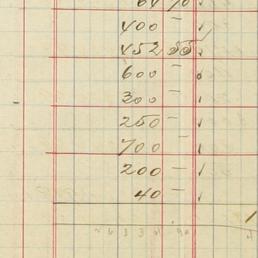 64 70
400 —
452 55
600 —
300 —
250 —
700 —
200 —
40 —
1